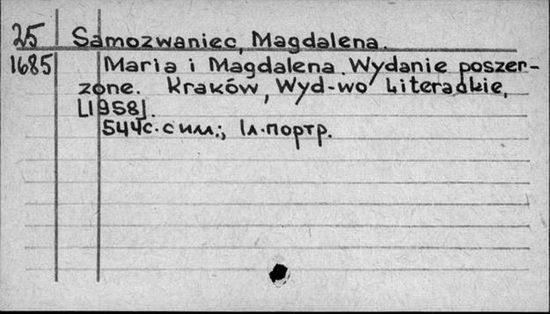 25 Samozwaniec, Magdalena.
1685 Maria i Magdalena. Wydanie poszer-
zone. Kraków, Wyd-wo Literackie,
[1958].
544с. с илл.; 1л. портр.